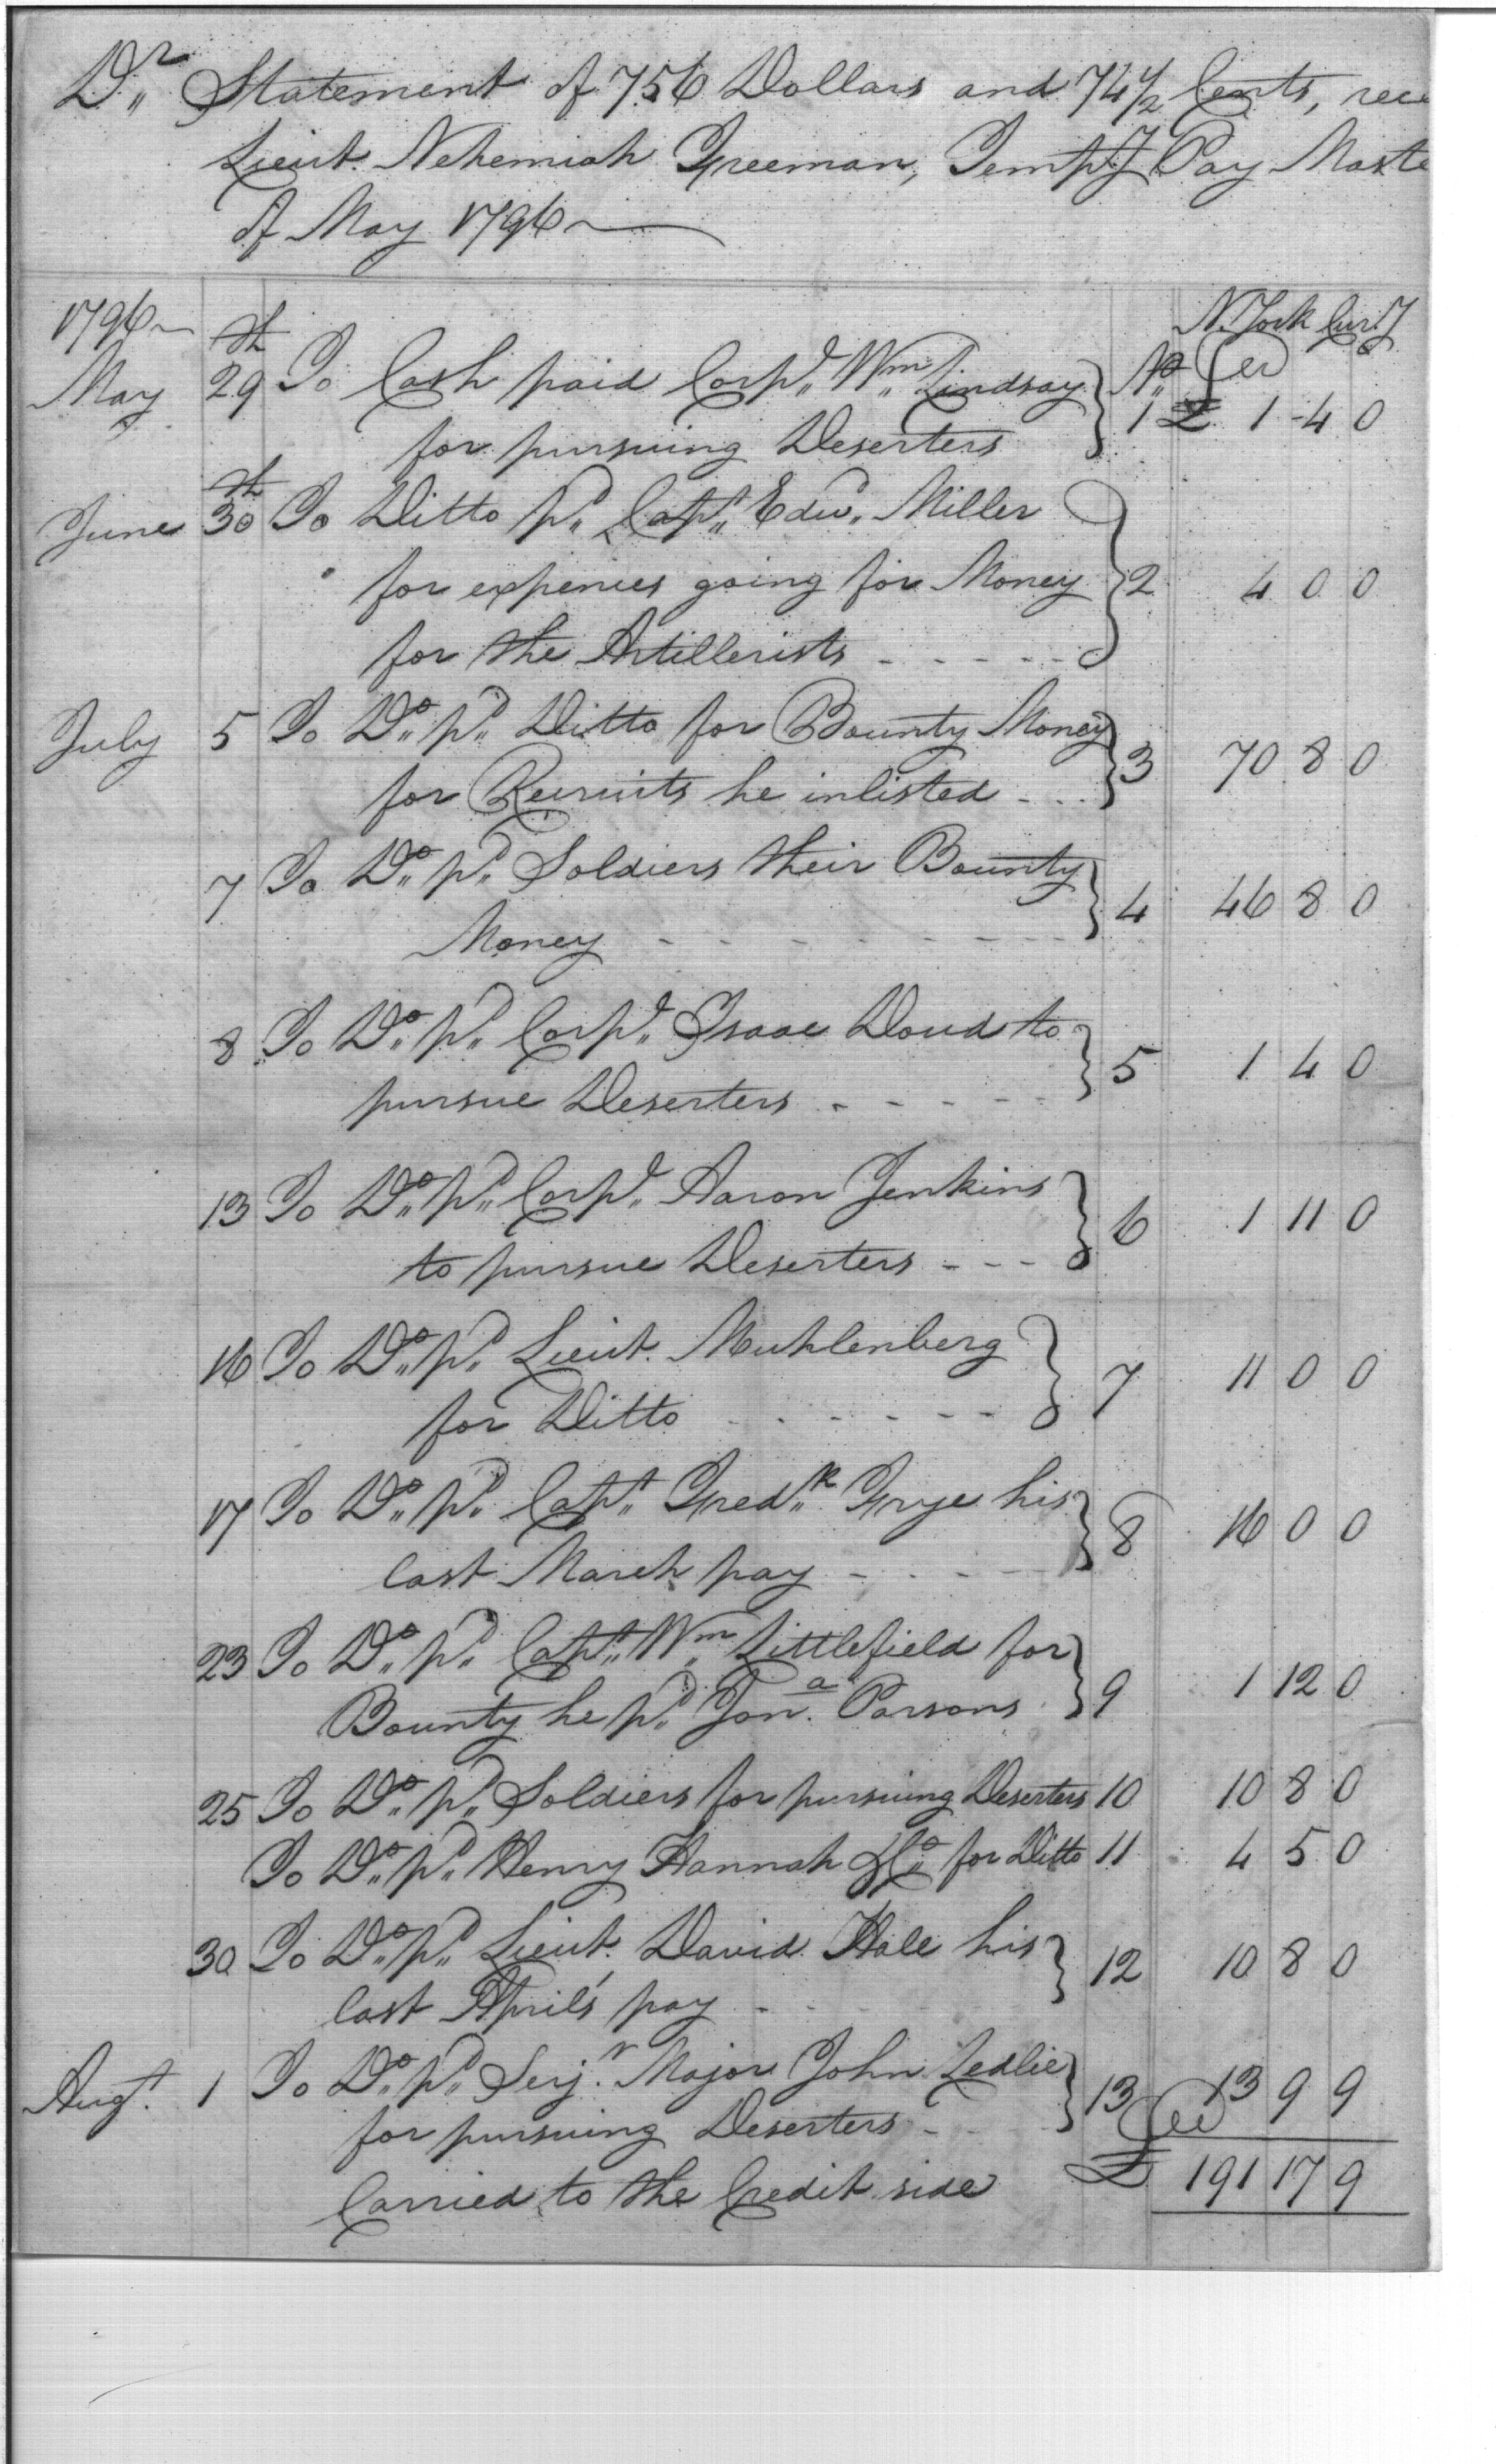 Dr Statement of 756 Dollars and 74 1/2 Cents, rece
Lieut. Nehemiah Freeman, Tempy Pay Maste
of May 1796
1796 N. York Curr.y
May 29th To Cash paid Corpl. Wm Lindsay } No 1 £ 1 4 0
for pursuing Deserters
June 30th To Ditto pd Capt. Edwd. Miller
for expences going for Money } 2 4 0 0
for the Artillerists - - - - -
July 5 To Do pd Ditto for Bounty Money } 3 70 8 0
for Recruits he inlisted - - -
7 To Do pd Soldiers their Bounty } 4 46 8 0
Money - - - - - - - - -
8 To Do pd Corpl. Isaac Doud to } 5 1 4 0
pursue Deserters - - - - -
13 To Do pd Corpl. Aaron Jenkins } 6 1 11 0
to pursue Deserters - - -
16 To Do pd Lieut. Muhlenberg } 7 11 0 0
for Ditto - - - - - -
17 To Do pd Capt Fredk Frye his } 8 16 0 0
last March pay - - - -
23 To Do pd Capt. Wm Littlefield for } 9 1 12 0
Bounty he pd Jona. Parsons
25 To Do pd Soldiers for pursuing Deserters 10 10 8 0
To Do pd Henry Hannah &Co for Ditto 11 4 5 0
30 To Do pd Lieut. David Hale his } 12 10 8 0
last April's pay - -
Augt. 1 To Do pd Serj.r Major John Ledlie } 13 13 9 9
for pursuing Deserters - -
Carried to the Credit side £ 191 17 9